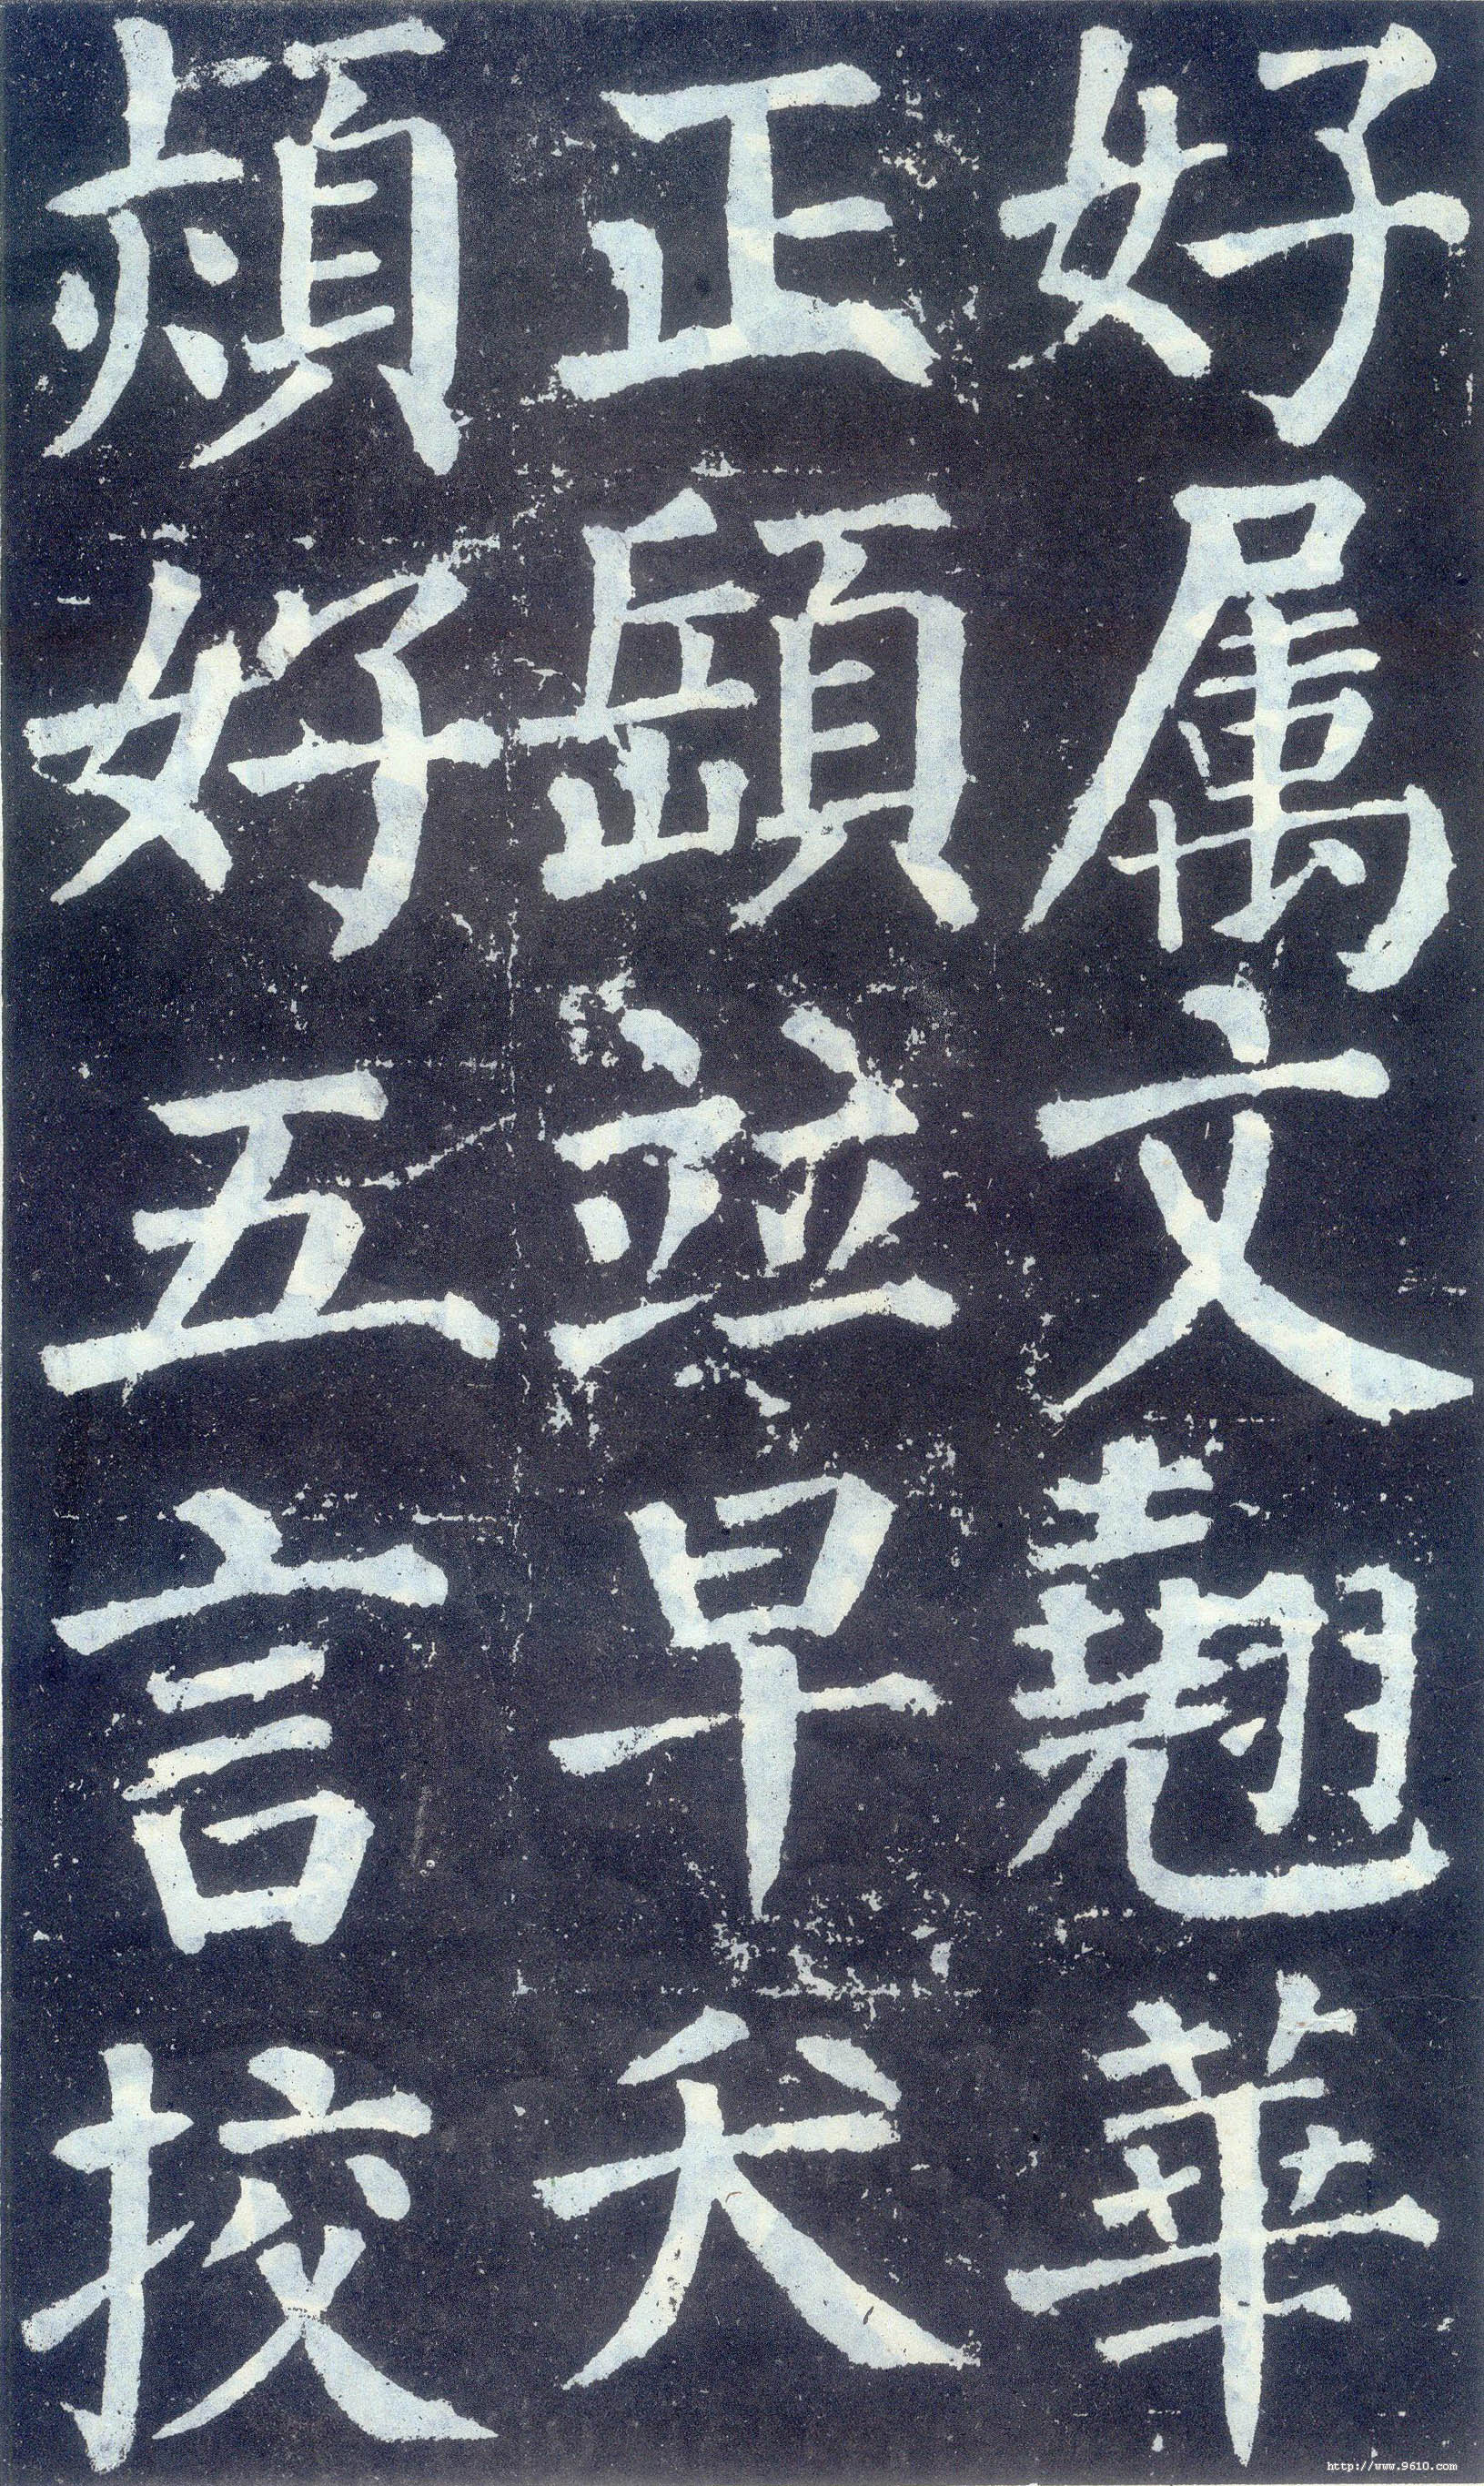 好属文翹華
正頤竝早夭
熲好五言挍
http://www.9610.com